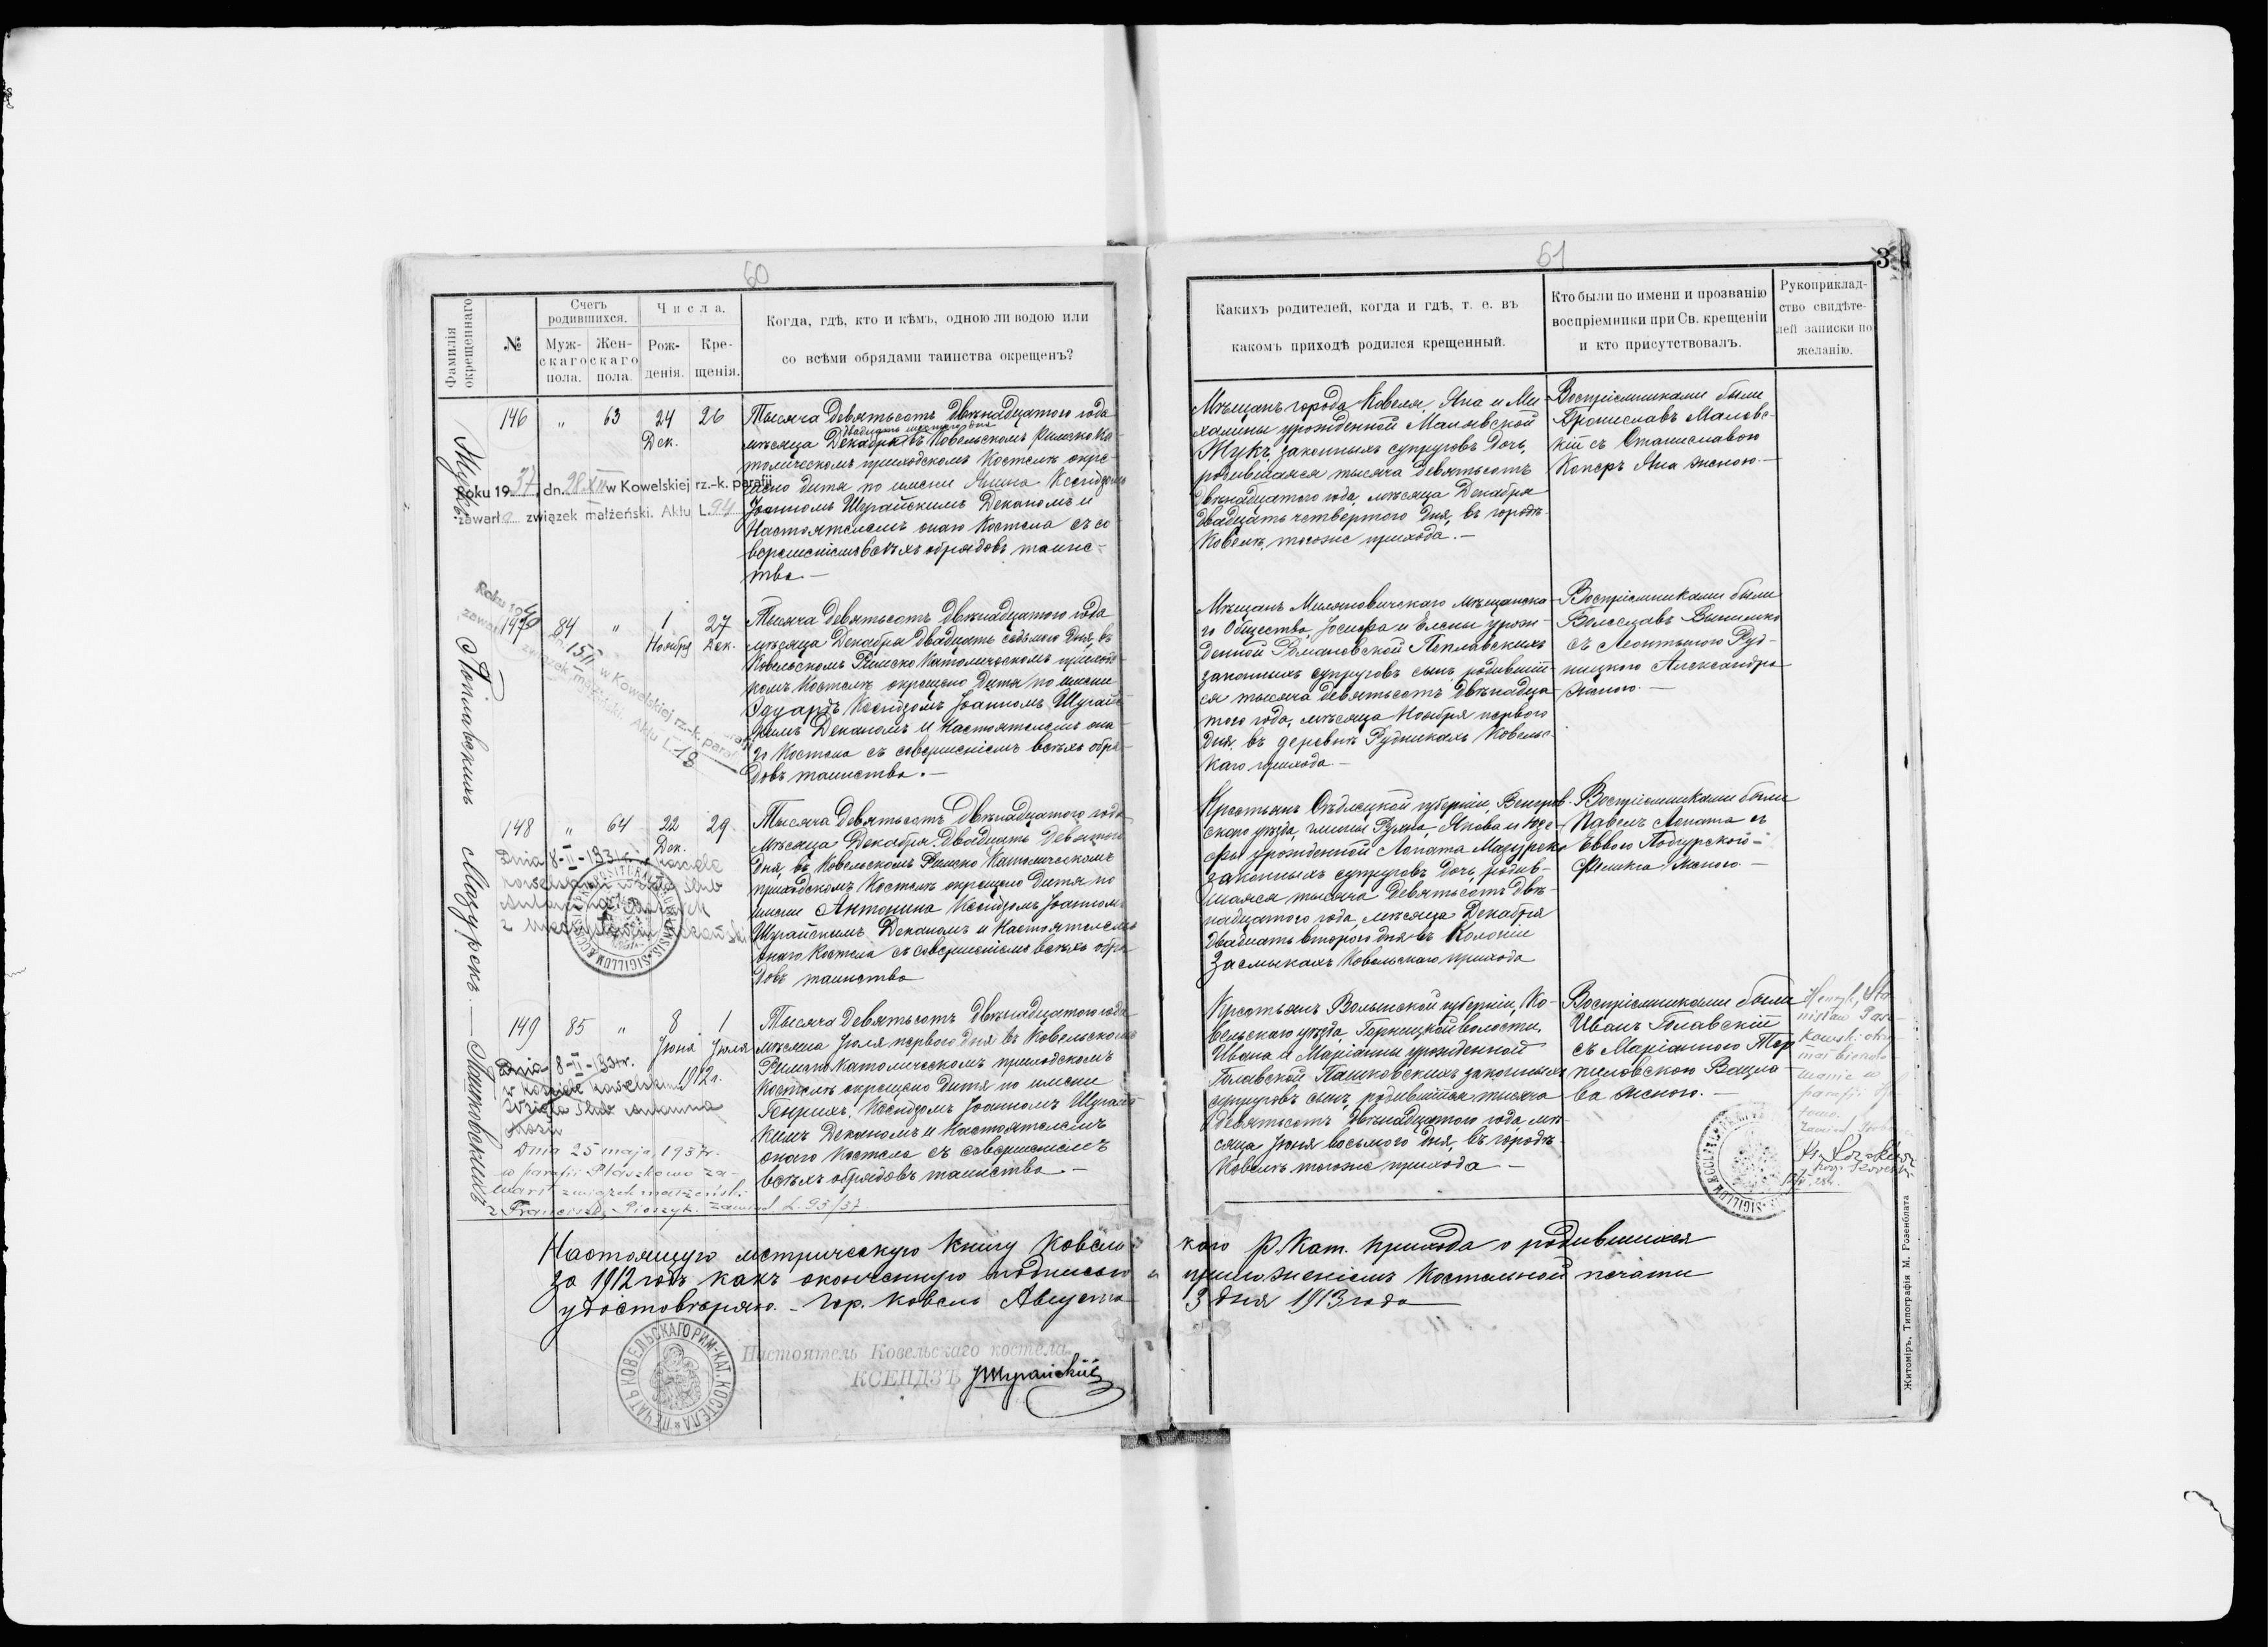 60
Фамилія окрещеннаго
№
Счетъ родившихся.
Муж-скаго пола.
Жен-скаго пола.
Числа.
Рож-денія.
Кре-щенія.
Когда, гдѣ, кто и кѣмъ, одною ли водою или
со всѣми обрядами таинства окрещенъ?
Жукъ.
146 " 63 24 Дек. 26
Тысяча девятьсотъ двѣнадцатого года
двадцать шестого дня
мѣсяца Декабря въ Ковельскомъ Римско Ка-
толическомъ приходскомъ Костелѣ окре-
щено дитя по имени Янина Ксендзомъ
Іоанномъ Шурайскимъ Деканомъ и
Настоятелемъ онаго Костела съ со
вершеніемъ всѣхъ обрядовъ таинс-
тва.—
Roku 1937, dn. 28.XII w Kowelskiej rz.-k. parafji
zawarła związek małżeński. Aktu L. 94
Поплавскихъ
84 " 1 Ноября 27 Дек.
Тысяча девятьсотъ двѣнадцатого года
мѣсяца Декабря двадцать седьмого дня, въ
Ковельскомъ Римско Католическомъ приходс-
комъ Костелѣ окрещено дитя по имени
Эдуардъ Ксендзомъ Іоанномъ Шурайс-
кимъ Деканомъ и Настоятелемъ она-
го Костела съ совершеніемъ всѣхъ обря-
довъ таинства.—
w Kowelskiej rz.-k. parafji
związek małżeński. Aktu L. 18
Мазурекъ.—
148 " 64 22 Дек. 29
Тысяча девятьсотъ двѣнадцатого года
мѣсяца Декабря двадцать девятого
дня, въ Ковельскомъ Римско Католическомъ
приходскомъ Костелѣ окрещено дитя по
имени Антонина Ксендзомъ Іоанномъ
Шурайскимъ Деканомъ и Настоятелемъ
онаго Костела съ совершеніемъ всѣхъ обря-
довъ таинства
Dnia 8-II-1931r. w kościele
Пашковскихъ
149 85 " 8 Іюня 1 Іюля 1912г.
Тысяча девятьсотъ двѣнадцатого года
мѣсяца Іюля первого дня въ Ковельскомъ
Римско Католическомъ приходскомъ
Костелѣ окрещено дитя по имени
Генрихъ, Ксендзомъ Іоанномъ Шурайс-
кимъ Деканомъ и Настоятелемъ
онаго Костела съ совершеніемъ
всѣхъ обрядовъ таинства.—
Dnia 8-II-1931r.
w kościele kowelskim
wzięła ślub Antonina
Dnia 25 maja 1937r.
w parafji za-
warł związek małżeński
L. 93/37
61
3
Какихъ родителей, когда и гдѣ, т. е. въ
какомъ приходѣ родился крещенный.
Кто были по имени и прозванію
воспріемники при Св. крещеніи
и кто присутствовалъ.
Рукоприклад-
ство свидѣте-
лей записки по
желанію.
Мѣщанъ города Ковеля, Яна и Ми-
халины урожденной Малевской
Жукъ, законныхъ супруговъ дочь,
родившаяся тысяча девятьсотъ
двѣнадцатого года, мѣсяца Декабря
двадцать четвертого дня, въ городѣ
Ковелѣ, тогоже прихода.—
Воспріемниками были
Брониславъ Малевс-
кій съ Станиславою
Коперъ Яна женою.—
Мѣщанъ Миляновичскаго мѣщанска-
го Общества, Іосифа и Елены урож-
денной Романовской Поплавскихъ
законныхъ супруговъ сынъ, родившій-
ся тысяча девятьсотъ двѣнадца-
того года, мѣсяца Ноября первого
дня, въ деревнѣ Рудникахъ Ковельс-
каго прихода.—
Воспріемниками были
съ Леонтиною Руд-
ницкого Александра
женою.—
Крестьянъ Сѣдлецкой губерніи, Венгров-
скаго уѣзда, гмины Якова и Юзе-
фы урожденной Лопата Мазурекъ
законныхъ супруговъ дочь, родив-
шаяся тысяча девятьсотъ двѣ-
надцатого года, мѣсяца Декабря
двадцать второго дня въ Колоніи
Засмыкахъ Ковельскаго прихода
Воспріемниками были
Павелъ Лопата съ
Еввою Подгурской
Феликса женою.—
Крестьянъ Волынской губерніи, Ко-
вельскаго уѣзда, волости,
Ивана и Маріанны урожденной
Голавской Пашковскихъ законныхъ
супруговъ сынъ, родившійся тысяча
девятьсотъ двѣнадцатого года, мѣ-
сяца Іюня восьмого дня, въ городѣ
Ковелѣ тогоже прихода.—
Воспріемниками были
Иванъ Голавскій
съ Маріанною Тер-
пиловскою Вацла-
ва женою.—
Настоящую метрическую книгу Ковельс-
каго Р. Кат. прихода о родившихся
за 1912 годъ какъ оконченную подписью и
приложеніемъ Костельной печати
удостовѣряю.- Гор. Ковель Августа
3 дня 1913 года
Настоятель Ковельскаго костела
КСЕНДЗЪ
ПЕЧАТЬ КОВЕЛЬСКАГО РИМ-КАТ. КОСТЕЛА
Житоміръ, Типографія М. Розенблата